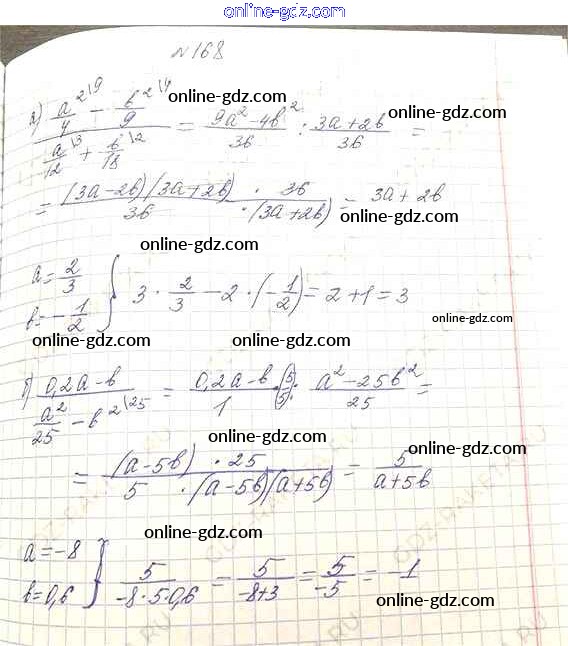 online-gdz.com
№168
а) (a²\9/4 − b²\4/9)/(a\3/12 + b\2/18) = (9a²−4b²)/36 : (3a+2b)/36 =
online-gdz.com
online-gdz.com
= (3a−2b)(3a+2b)/36 · 36/·(3a+2b) = 3a+2b
online-gdz.com
online-gdz.com
a=2/3
b=−1/2 } 3·2/3−2·(−1/2)=2+1=3
online-gdz.com
online-gdz.com
online-gdz.com
б) (0,2a−b)/(a²/25 − b²\25) = (0,2a−b)/1 ·(5/5): (a²−25b²)/25 =
online-gdz.com
online-gdz.com
= (a−5b)·25/5·(a−5b)(a+5b) = 5/(a+5b)
online-gdz.com
online-gdz.com
a=−8
b=0,6 } 5/(−8·5·0,6) = 5/(−8+3) = 5/−5 = −1
online-gdz.com
online-gdz.com